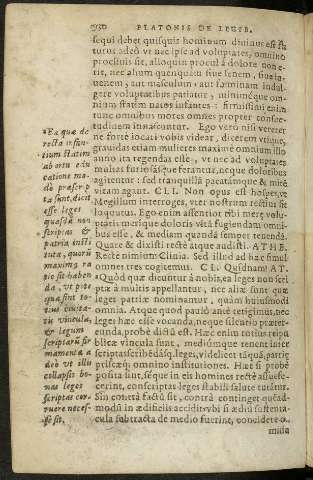 PLATONIS DE LEGIB.
sequi debet quisquis hominum diuinus est fu
turus adeò vt nec ipse ad voluptates, omnino
procliuis sit, alioquin procul à dolore non e-
rit, nec alium quenquam siue senem, siue iu-
uenem, aut masculum aut fœminam indul-
gere voluptatibus patiatur, minimeque om-
nium statim natos infantes: firmissimi enim
tunc omnibus mores omnes propter consue-
tudinem innascuntur. Ego verò nisi vererer
ne forte iocari vobis videar, dicerem vtique,
grauidas etiam mulieres maximè omnium illo
anno ita regendas esse, vt nec ad voluptates
multas furiosásque ferantur, neque doloribus
agitentur: sed tranquillã pacatámque & mitẽ
vitam agant. CLI. Non opus est hospes, vt
Megillum interroges, vter nostrum rectius sit
loquutus. Ego enim assentior tibi meræ volu-
ptatis meræque doloris vitã fugiendam omni-
bus esse, & mediam quandã semper tenendã.
Quare & dixisti rectè atque audisti. ATHE.
Rectè nimium Clinia. Sed illud ad hæc simul
omnes tres cogitemus. CLI. Quidnam? AT.
Quòd quæ dicuntur à nobis, ea leges non scri
ptæ à multis appellantur, nec aliæ sunt quæ
leges patriæ nominantur, quàm huiusmodi
omnia. Atque quod paulò antè tetigimus, nec
leges hæc esse vocanda, neque silentio præter-
eunda, probè dictũ est. Hæc enim totius reipu
blicæ vincula sunt, mediúmque tenent inter
scriptas scribẽdásq; leges, videlicet tãquã, patrię
priscæq; omnino institutiones. Hæc si probè
posita sint, séque in eis homines rectè assuefe-
cerint, conscriptas leges stabili salute tutãtur.
Sin contrà factũ sit, contrà continget quẽad-
modũ in ædificiis accidit: vbi si ædiũ sustenta-
cula subtracta de medio fuerint, concidere o-
mnia
Ea quæ de
recta infan-
tium statim
ab ortu edu
catione mo-
dò præscrip
ta sunt, dicit
esse leges
quasdã non
scriptas &
patria insti
tuta, quorũ
maxima ra
tio sit haben
da, vt pote
quæ sint to-
tius ciuita-
tis vincula,
& legum
scriptarũ fir
mamenta a
deò vt illis
collapsis bo-
nas leges
scriptas cor-
ruere neces-
se sit.